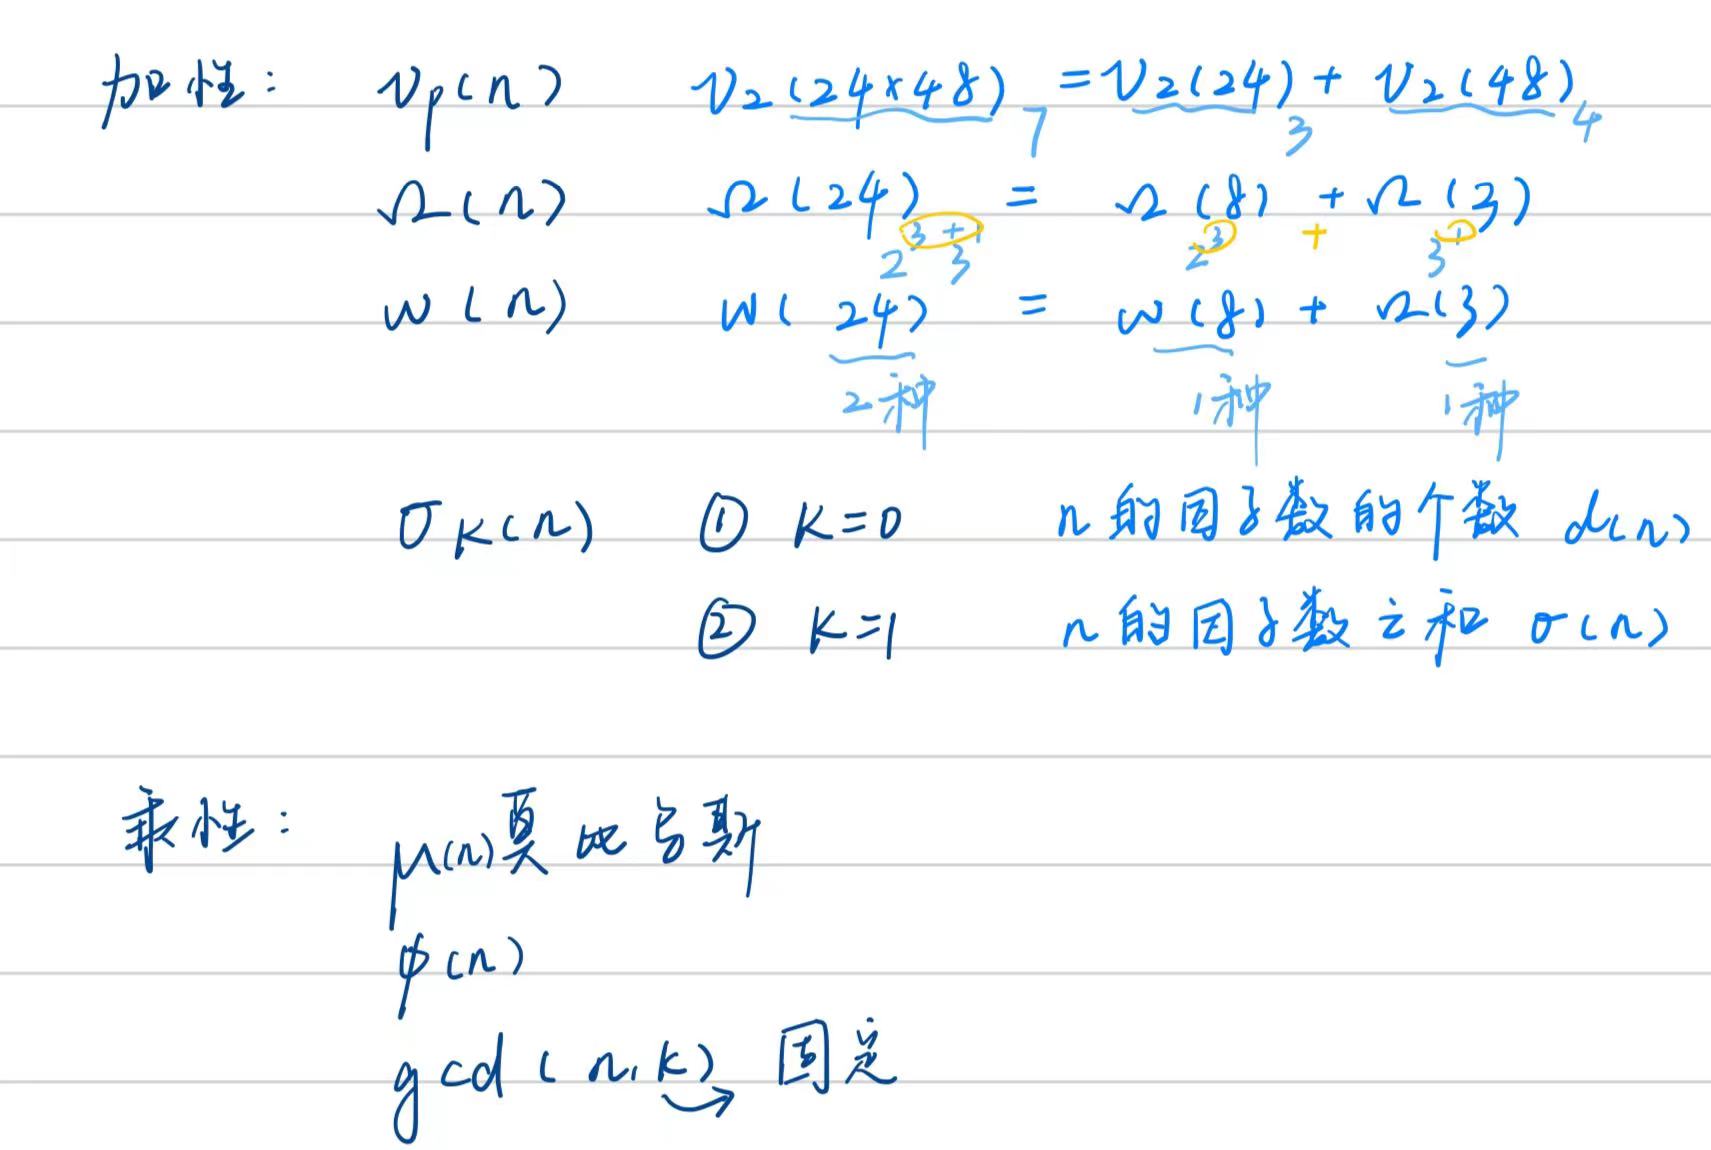 加性: νp(n) ν2(24×48) 7 = ν2(24) 3 + ν2(48) 4
Ω(n) Ω(24) = Ω(8) + Ω(3)
2^3 3^+1 2^3 + 3^1
w(n) w(24) = w(8) + Ω(3)
2种 1种 1种
σK(n) ① K=0 n的因子数的个数 d(n)
② K=1 n的因子数之和 σ(n)
乘性: μ(n)莫比乌斯
φ(n)
gcd(n,k) → 固定